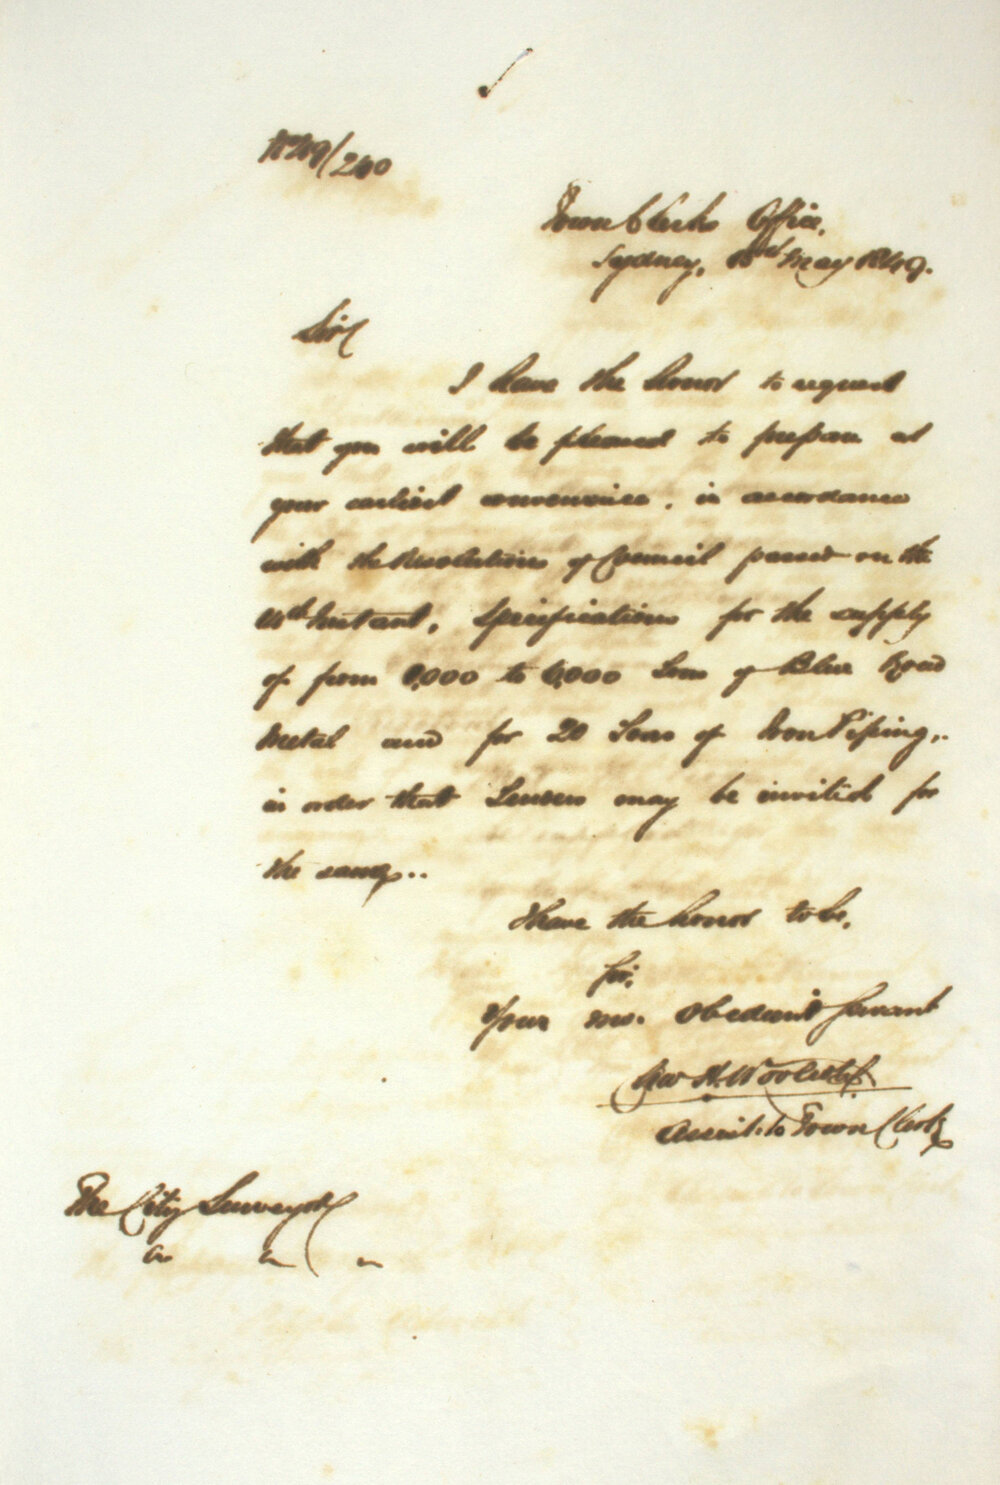 49/240
Town Clerks Office,
Sydney, May 1849.
Sir
I have the honor to request
that you will be pleased to prepare at
your earliest convenience, in accordance
with the Resolutions of Council passed on the
Instant, Specifications for the supply
of from to 6,000 Tons of Blue Road
Metal and for 20 Tons of Iron Piping,
in order that Tenders may be invited for
the same..
I have the honor to be,
Sir,
Your mo. Obedient Servant
Geo H. Woolcott
Assist. to Town Clerk
The City Surveyor